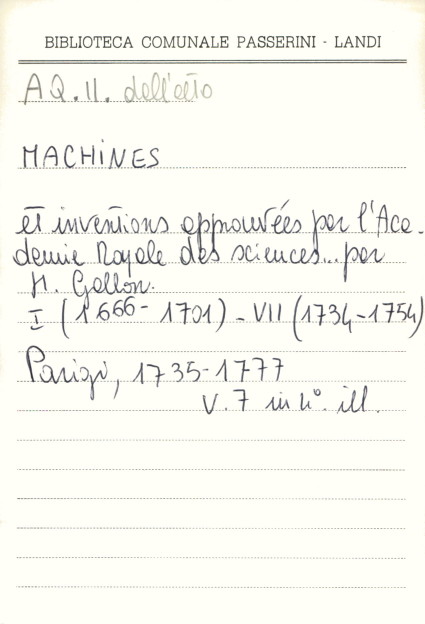 BIBLIOTECA COMUNALE PASSERINI - LANDI
AQ.II. dell'atto
MACHINES
et inventions approuvées par l'Aca-
demie Royale des sciences... par
M. Gallon.
I (1666- 1701) - VII (1734-1754)
Parigi, 1735-1777
V. 7 in 4°. ill.